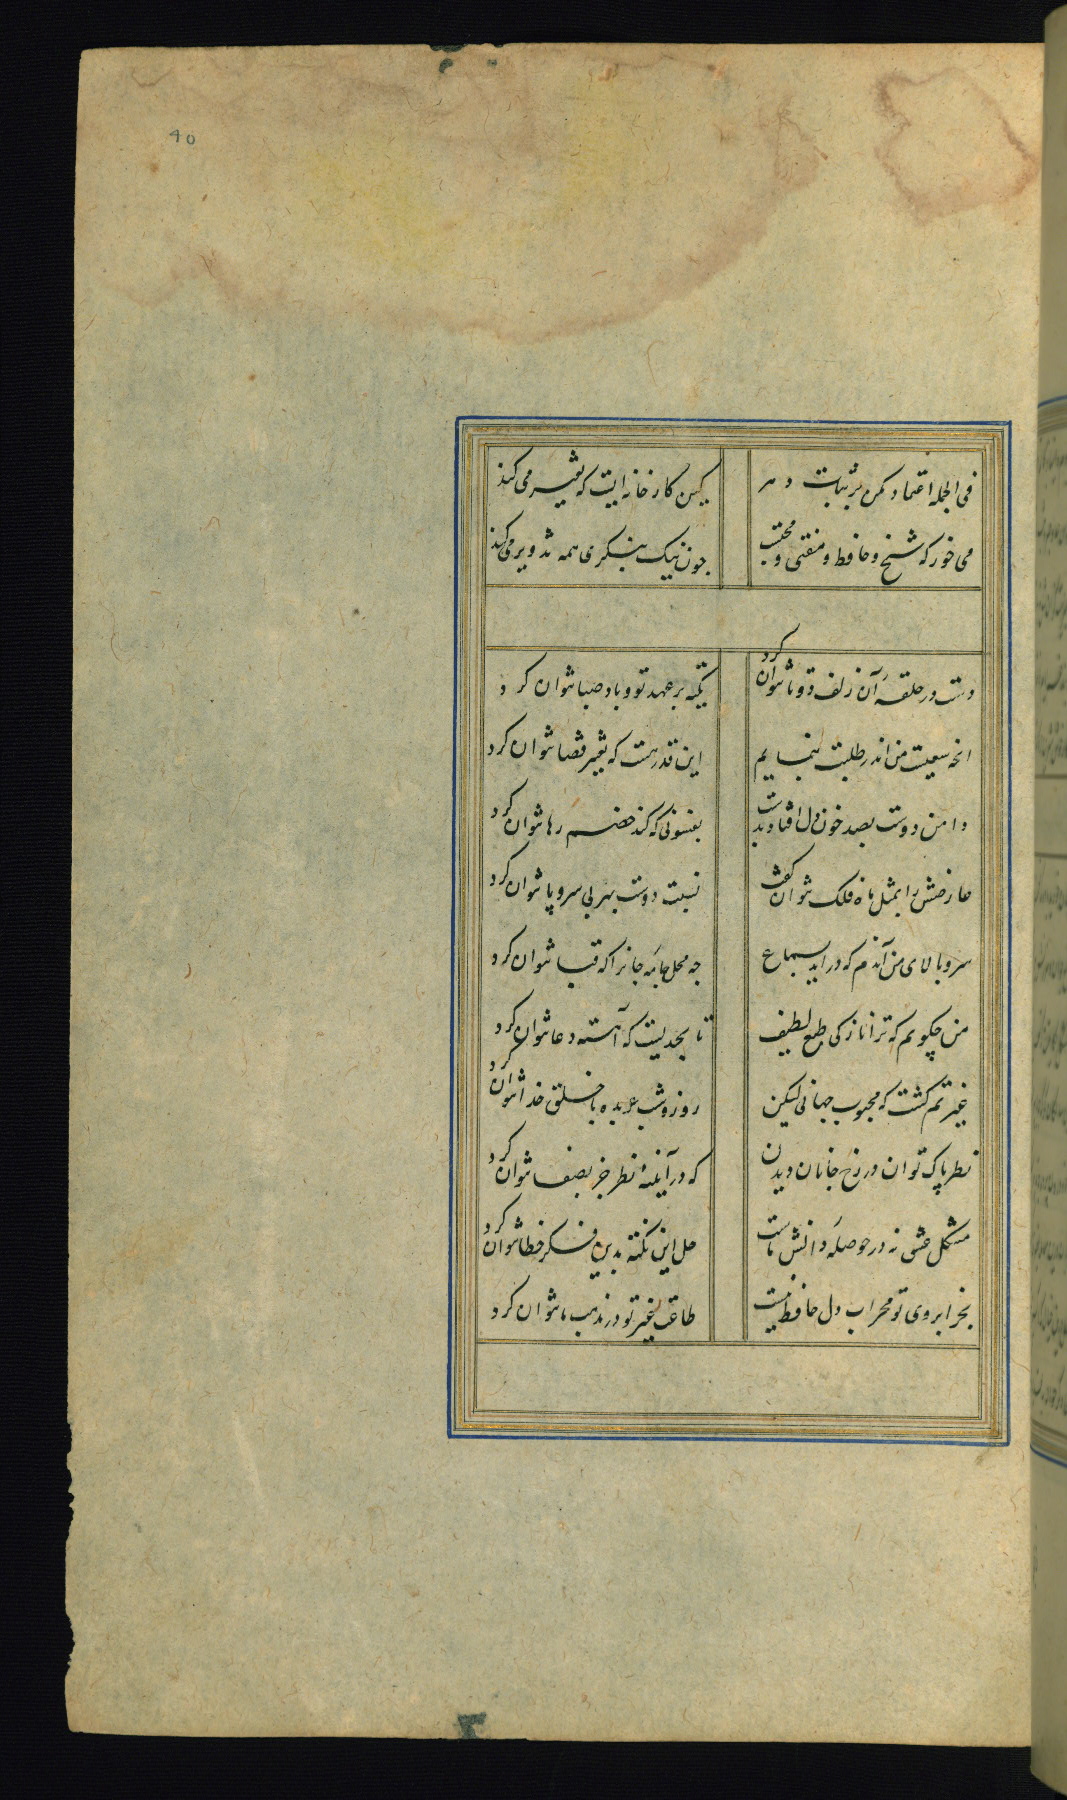 40
فی الجمله اعتماد مکن بر ثبات دهر کین کارخانه ایست که تغییر می کنند
می خور که شیخ و حافظ و مفتی و محتسب چون نیک بنگری همه تزویر می کنند
دست در حلقهٔ آن زلف دوتا نتوان کرد تکیه بر عهد تو و باد صبا نتوان کرد
آنچه سعیست من اندر طلبت بنمایم این قدر هست که تغییر قضا نتوان کرد
دامن دوست بصد خون دل افتاد بدست بفسونی که کند خصم رها نتوان کرد
عارضش را بمثل ماه فلک نتوان گفت نسبت دوست بهر بی سر و پا نتوان کرد
سرو بالای من آندم که درآید بسماع چه محل جامهٔ جانرا که قبا نتوان کرد
من چگویم که ترا نازکی طبع لطیف تا بحدیست که آهسته دعا نتوان کرد
غیرتم کشت که محبوب جهانی لیکن روز و شب عربده با خلق خدا نتوان کرد
نظر پاک توان در رخ جانان دیدن که در آینهٔ نظر جز بصفا نتوان کرد
مشکل عشق نه در حوصلهٔ دانش ماست حل این نکته بدین فکر خطا نتوان کرد
بجز ابروی تو محراب دل حافظ نیست طاعت غیر تو در مذهب ما نتوان کرد